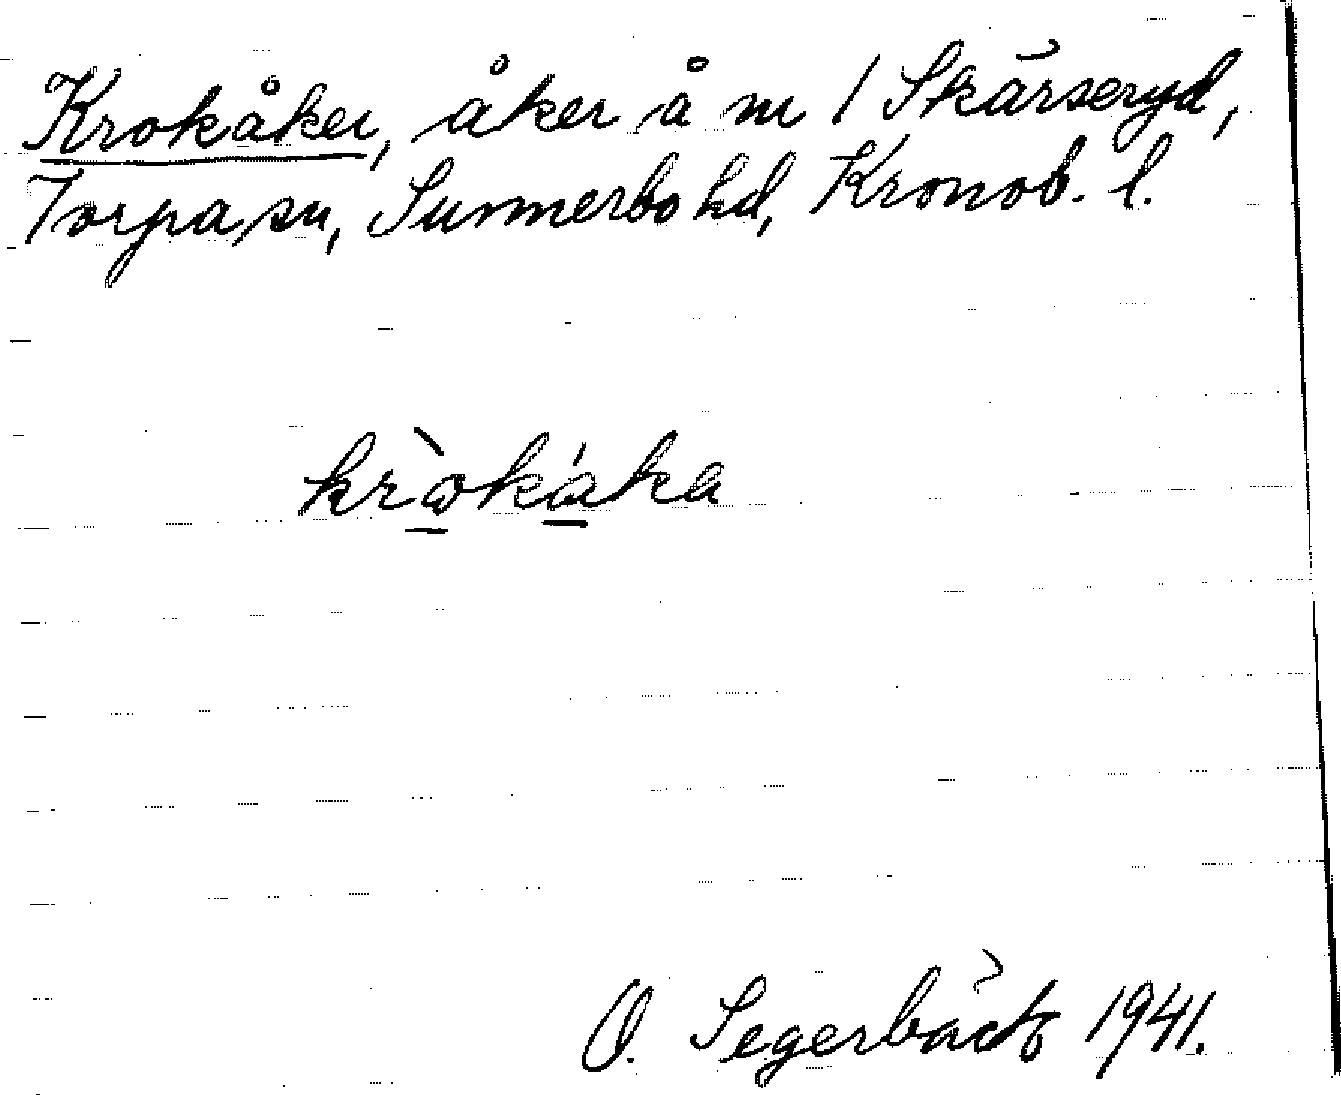 Krokåker, åker å m 1 Skärseryd,
Torpa sn, Sunnerbo hd, Kronob. l.
kròkáka
O. Segerbäck 1941.